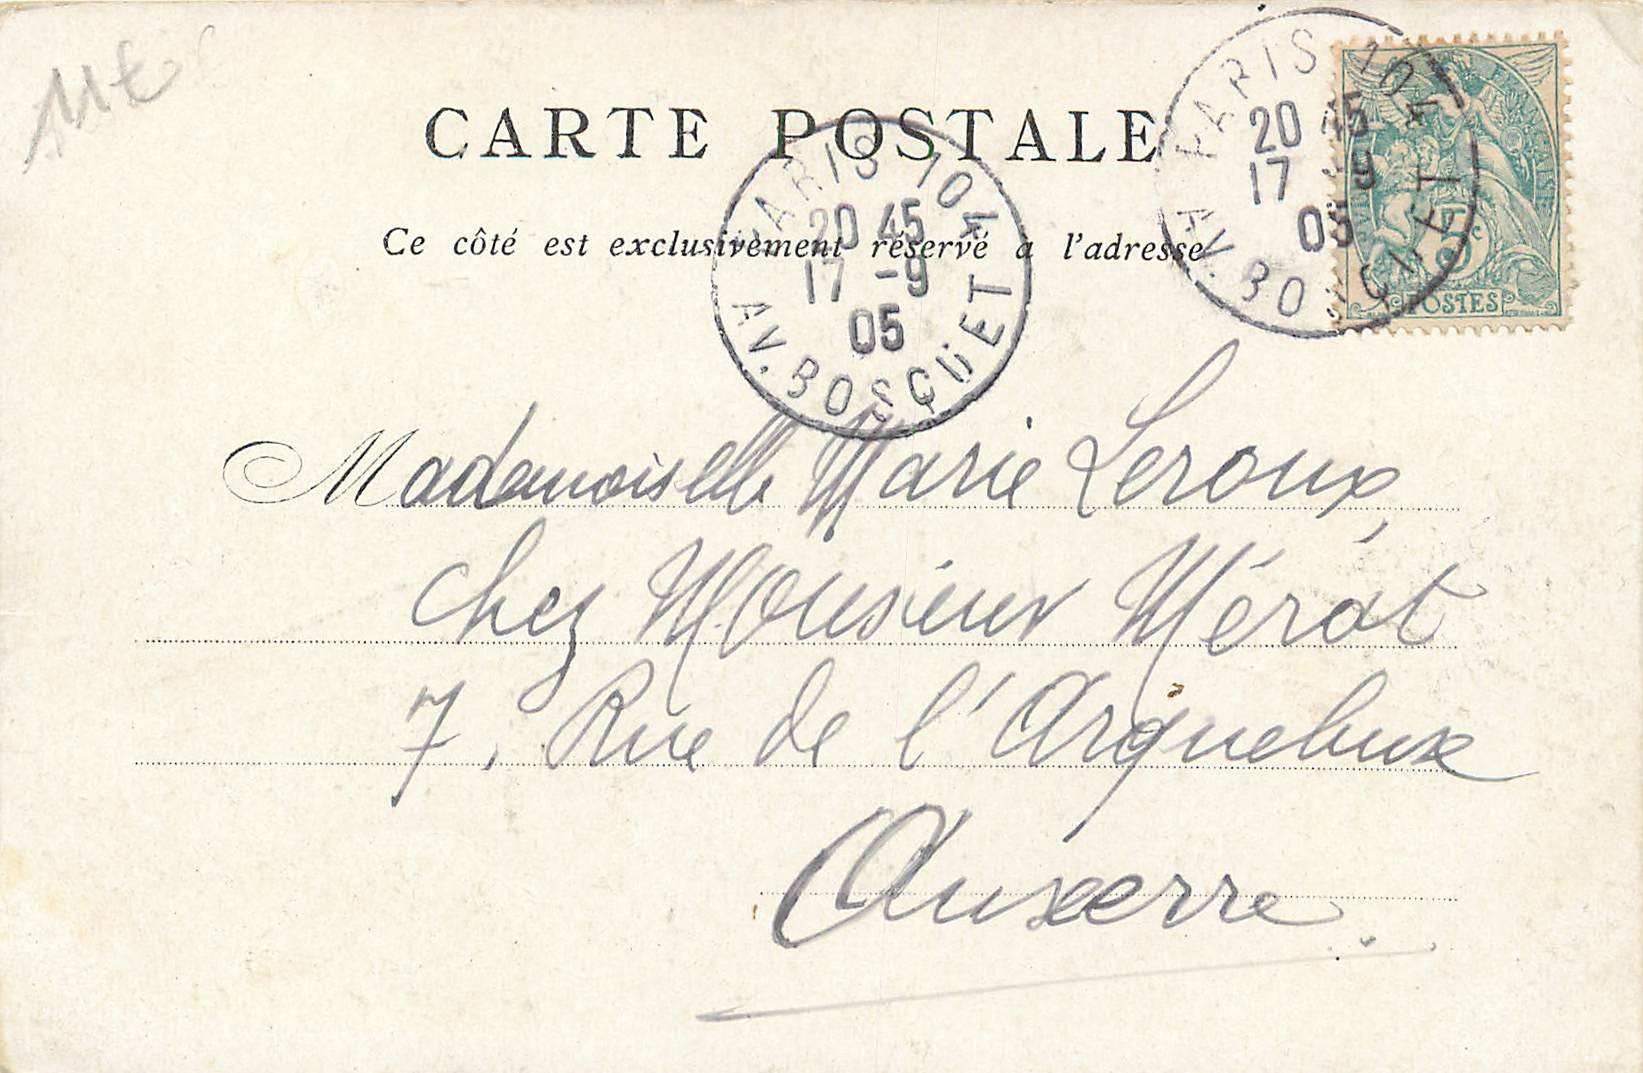 11 €
CARTE POSTALE
Ce côté est exclusivement réservé à l'adresse
PARIS 104
20 45
17 -9
05
AV. BOSQUET
PARIS 104
20 45
17 -9
05
AV. BOSQUET
5c
POSTES
Mademoiselle Marie Leroux,
chez Monsieur Mérat
7, Rue de l'Arquebuse
Auxerre